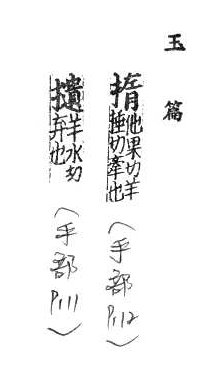 玉篇
他果切羊
捶切牽也
(手部 P.112)
羊水切
弃也
(手部 P.111)